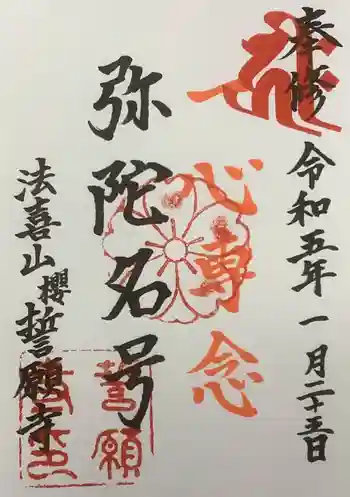 奉修 令和五年 一月二十五日
一心専念
弥陀名号
法喜山 櫻 誓願寺
誓願